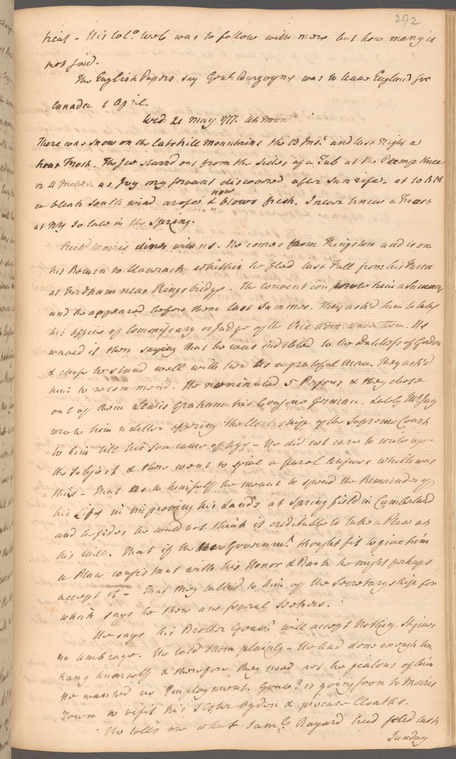 292
treat - His Col.o Web was to follow with more but how many is
not said.
The English Papers say Gen.l Burgoyne was to leave England for
Canada 1 April.
Wed 21 May 777.
There was Snow on the Catskill Mountains the 13 Ins.t and last Night a
hoar Frost. The Ice stood out from the Sides of a Tub at the Pump three
or 4 Inches as Ivy my Servant discovered after Sun rise. at 10 AM
a bleak South wind arose & now blows fresh. I never knew a Frost
at NY so late in the Spring.
Rich.d Morris dines with us. He comes from Kingston and is on
his Return to Claverack whither he fled last Fall from his Farm
at Fordham near Kings bridge. The Convention wrote him a Summons
and he appeared before them last Summer. They ask'd him to take
his Office of Judge of the Vice
waved it then saying that he was indebted to the
& chose to stand well with her as a grateful Man. They ask'd
him to recommend. He nominated 5 Persons & they chose
out of them Lewis Graham his Cousin German. Lately M.r Jay
wrote him a Letter offering the Clerkship of the Supreme Court
to him till his Son came of Age - He did not care to write upon
the Subject & then went to give a parol Answer which was
this - That as to himself he meant to spend the Remainder of
his Life in improving his Lands at Springfield in Cumberland
and besides he did not think it creditable to take a Place as
his
That if the new Governm.t thought fit to give him
a Place consistent with his Honor & Rank he might perhaps
accept it - That they talked to him of the Secretaryship for
which says he there are several Seekers.
He says his Brother Gouv.r will accept Nothing. It gives
no Umbrage. He told them plainly - He had done enough to
hang himself & therefore they need not be jealous of him
He wanted no Employment. Gouv.r is going soon to Morris
Town to visit his Sister Ogden & procure Cloaths.
He tells me what Sam.l Bayard had told last
Sunday